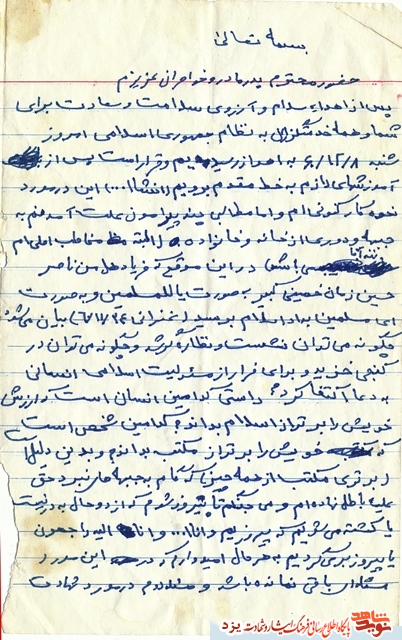 بسمه تعالی
حضور محترم پدر مادر و خواهران عزیزم
پس از اهداء سلام و آرزوی سلامت و سعادت برای
شما و همه خدمتگزاران به نظام جمهوری اسلامی امروز
شنبه ۶۰/۱۲/۸ به اهواز رسیدیم و قرار است پس از
آموزشهای لازم به خط مقدم برویم (انشاءا...) این در مورد
نحوه کار کنونی ام و اما مطالبی چند پیرامون علت آمدنم به
جبهه و دوری از خانه و خانواده (البته مخاطب اصلی ام
در این موقع که فریاد هل من ناصر
حسین زمان خمینی کبیر به صورت یا للمسلمین و به صورت
ای مسلمین به داد اسلام برسید بیان می‌شود
چگونه می توان نشست و نظاره گر شد و چگونه می توان در
کنجی خزید و برای فرار از مسئولیت اسلامی انسانی
به دعا اکتفا کرد؟ راستی کدامین انسان است که ارزش
خویش را برتر از اسلام بداند؟ کدامین شخص است
که خویش را برتر از مکتب بداند؟ و بدین دلیل
(برتری مکتب از همه چیز) که گام به جبهه های نبرد حق
علیه باطل نهاده ام و می جنگم تا پیروز شوم که از دو حال به در نیست
یا کشته می شویم که پیروزیم وانا... و انا الیه راجعون
یا پیروز برمی گردیم به هر حال امیدوارم که در این مورد
مسئله ای باقی نمانده باشد و در مورد شهادت
نوید شاهد
پایگاه اطلاع رسانی فرهنگ ایثار و شهادت یزد